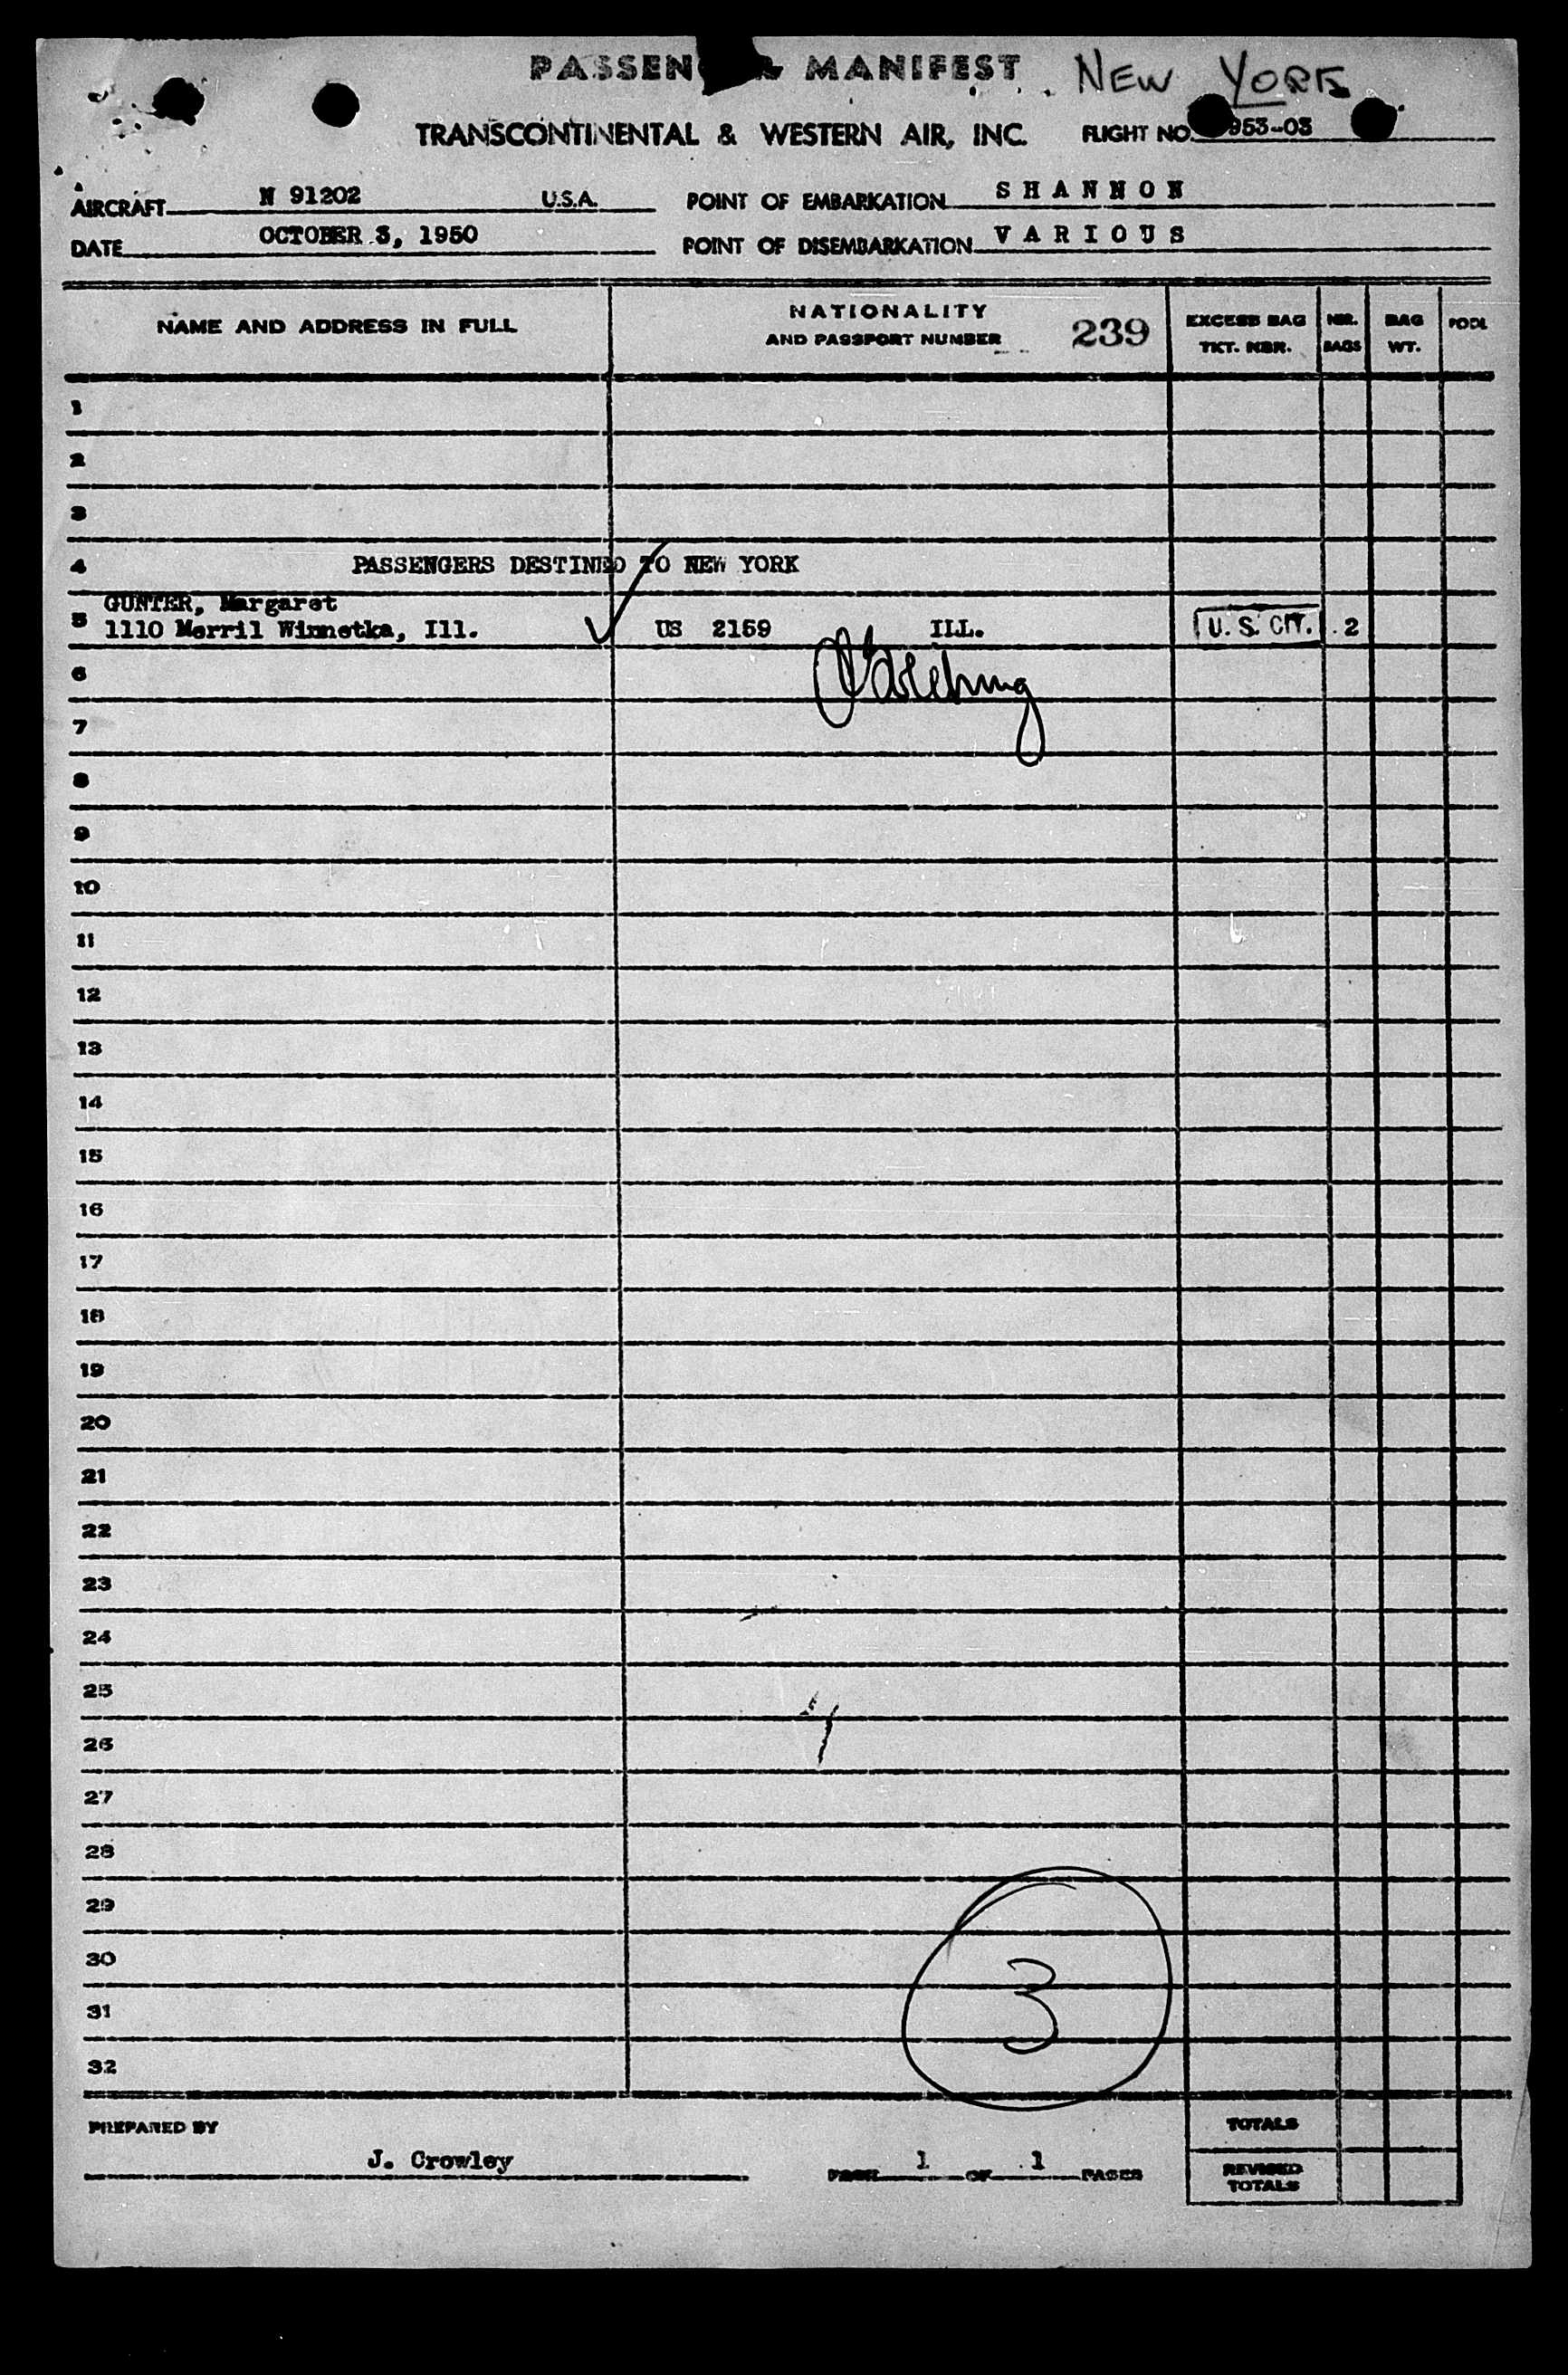 PASSEN MANIFEST NEW YORK
TRANSCONTINENTAL & WESTERN AIR, INC. FLIGHT NO. 953-03
AIRCRAFT N 91202 U.S.A. POINT OF EMBARKATION SHANNON
DATE OCTOBER 3, 1950 POINT OF DISEMBARKATION VARIOUS
NAME AND ADDRESS IN FULL NATIONALITY AND PASSPORT NUMBER 239 EXCESS BAG TKT. NBR. NBR. BAGS BAG WT. PODL
1
2
3
4 PASSENGERS DESTINED TO NEW YORK
GUNTER, Margaret
5 1110 Merril Winnetka, Ill. US 2159 ILL. U. S. CIT. 2
6
7
8
9
10
11
12
13
14
15
16
17
18
19
20
21
22
23
24
25
26
27
28
29
30
3
31
32
PREPARED BY TOTALS
J. Crowley PAGE 1 OF 1 PAGES REVISED TOTALS